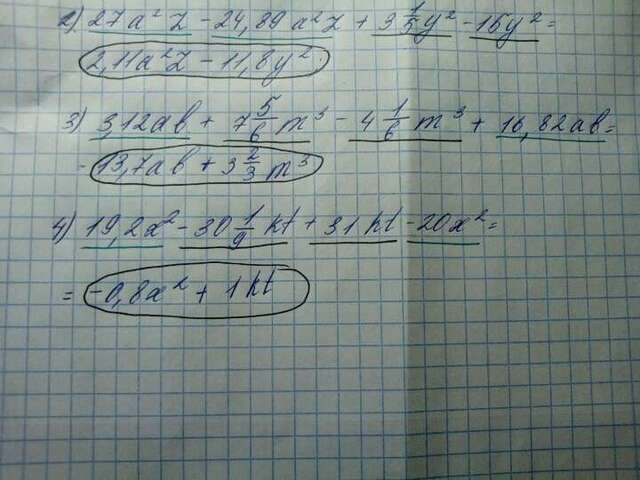 2) 27a²z - 24,89a²z + 3 1/5 y² - 15y² =
2,11a²z - 11,8y²
3) 3,12ab + 7 5/6 m³ - 4 1/6 m³ + 16,82ab =
- 13,7ab + 3 2/3 m³
4) 19,2x² - 30 1/9 kt + 31kt - 20x² =
= -0,8x² + 1kt